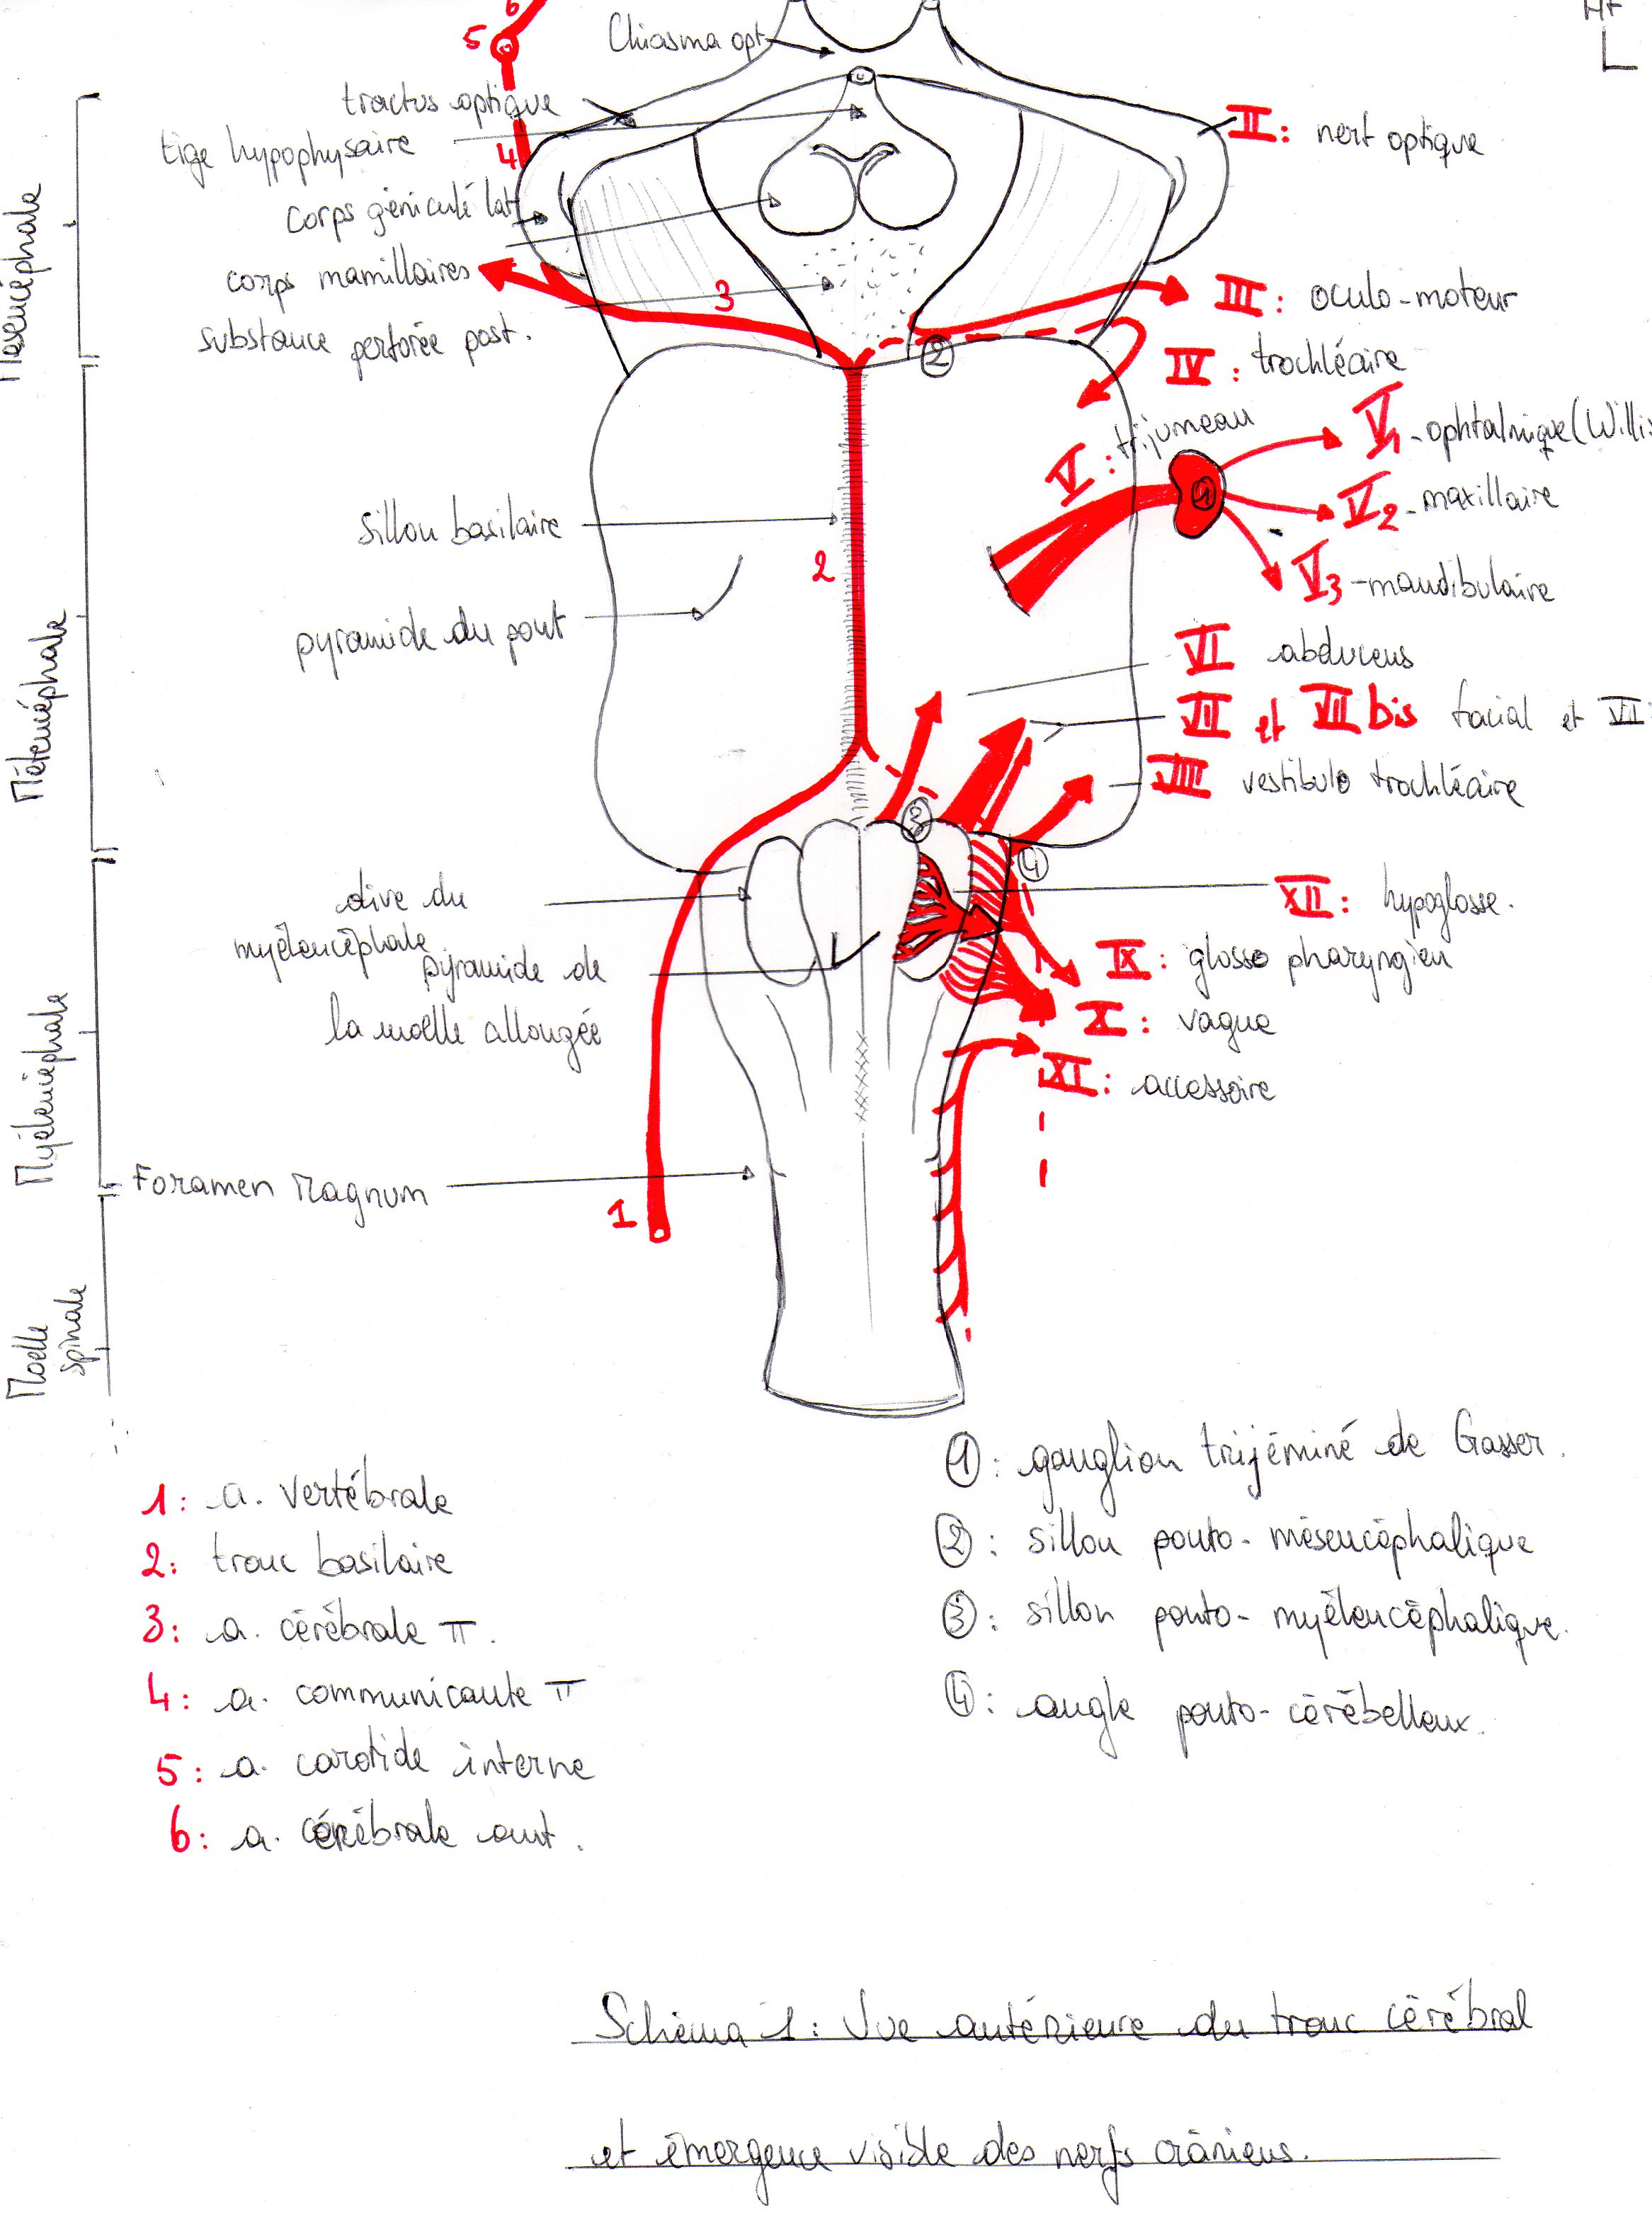 6
5
Chiasma opt
Ht
tractus optique
tige hypophysaire
4
II : nerf optique
corps géniculé lat
corps mamillaires
3
III : oculo-moteur
substance perforée post.
2
IV : trochléaire
V : trijumeau
V1 - ophtalmique (Willis
1
V2 - maxillaire
V3 - mandibulaire
sillon basilaire
2
pyramide du pont
VI abducens
VII et VII bis facial et VII
VIII vestibulo trochléaire
3
4
olive du
myélencéphale
XII : hypoglosse.
pyramide de
la moelle allongée
IX : glosso pharyngien
X : vague
XI : accessoire
Foramen Magnum
1
Mésencéphale
Métencéphale
Myélencéphale
Moelle
spinale
1 : a. vertébrale
2 : tronc basilaire
3 : a. cérébrale π.
4 : a. communicante π
5 : a. carotide interne
6 : a. cérébrale ant.
1 : ganglion trijéminé de Gasser.
2 : sillon ponto-mésencéphalique
3 : sillon ponto-myélencéphalique.
4 : angle ponto-cérébelleux.
Schéma 1 : Vue antérieure du tronc cérébral
et émergence visible des nerfs crâniens.